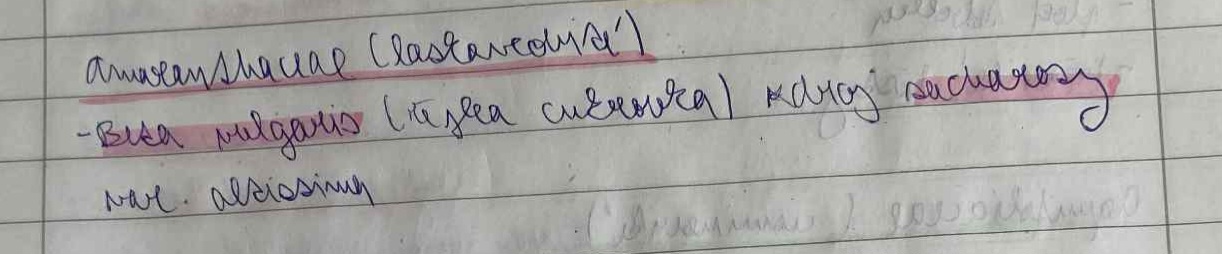 Amaranthaceae (laskavcovité)
- Beta vulgaris (řepka cukrovka) zdroj sacharosy
var. altissima